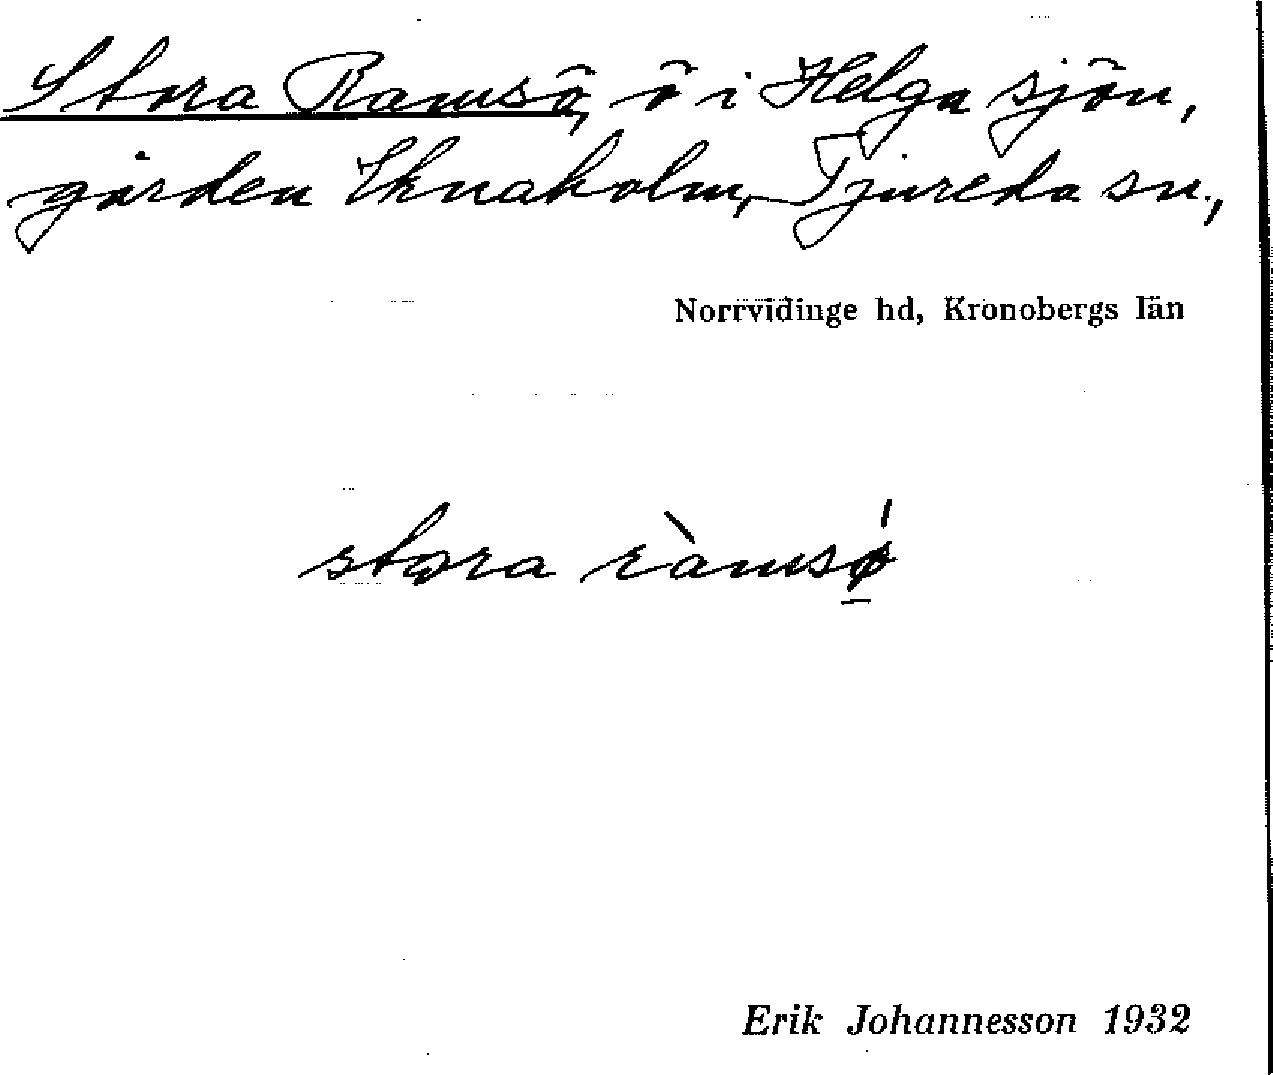 Stora Ramsö, ö i Helga sjön,
gården Iknaholm, Tjureda sn.,
Norrvidinge hd, Kronobergs län
stora ràmsǿ̱
Erik Johannesson 1932